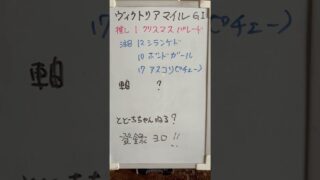 ヴィクトリアマイル GI
推し 1 クリスマスパレード
注目 12 シランケド
10 ボンドガール
17 アスコリピチェーノ
軸 ?
とどーちゃんねる?
登録ヨロ!!